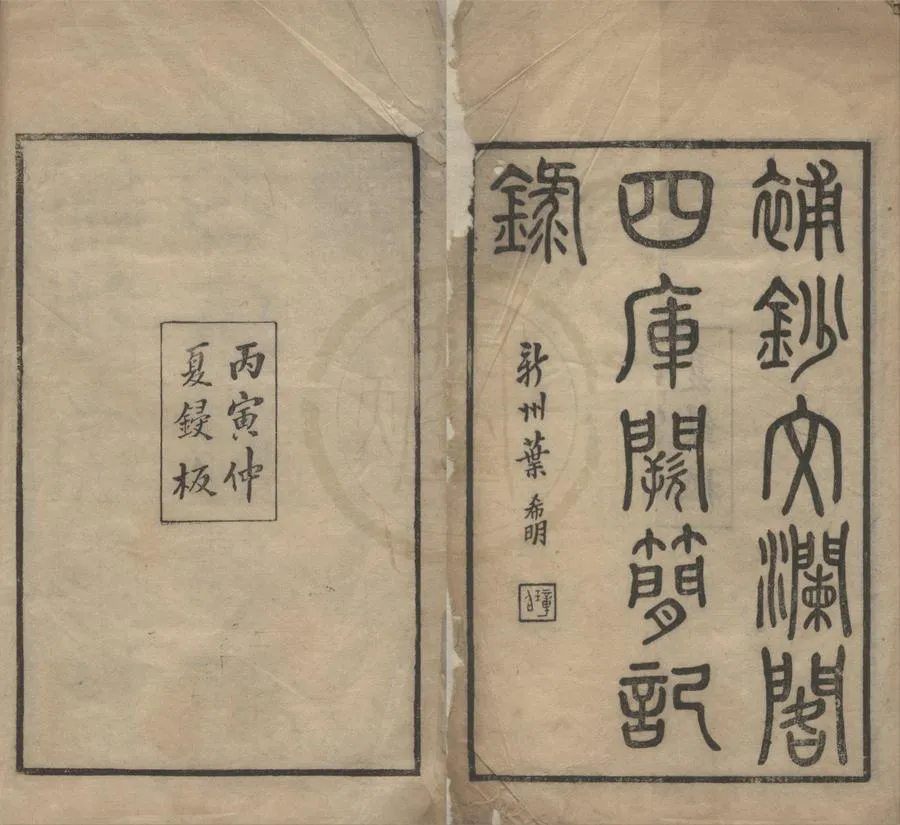 補鈔文瀾閣
四庫闕簡記
錄
新州葉希明
丙寅仲
夏鋟板